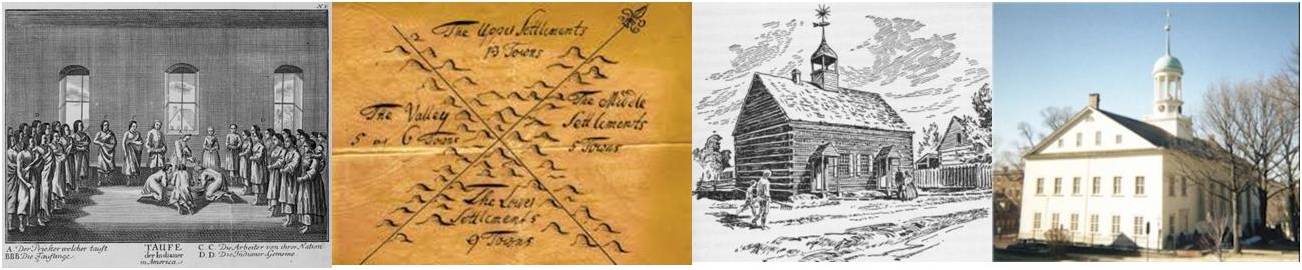 N I
A. Der Priester welcher tauft
BBB Die Täuflinge.
TAUFE
der Indianer
in America.
C. C. Die Arbeiter von ihrer Nation
D. D. Die Indianer Gemeine.
The Upper Settlements
13 Towns
The Valley
5 or 6 Towns
The Middle
Settlements
5 Towns
The Lower
Settlements
9 Towns